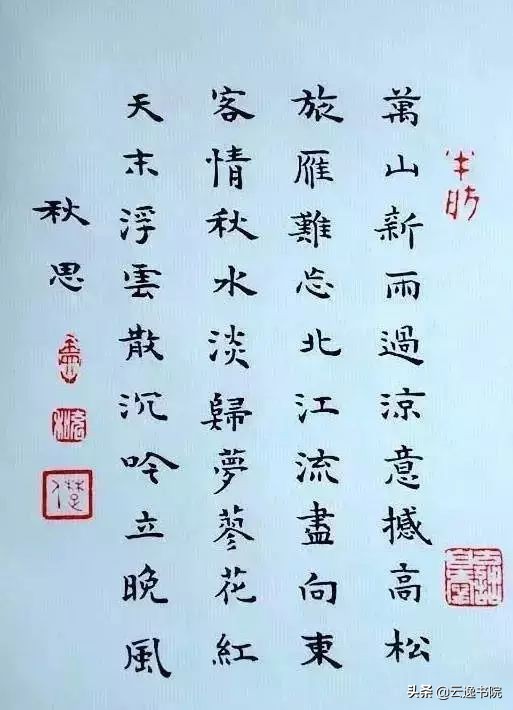 萬山新雨過涼意撼高松
旅雁難忘北江流盡向東
客情秋水淡歸夢蓼花紅
天末浮雲散沉吟立晚風
秋思
头条 @云逸书院